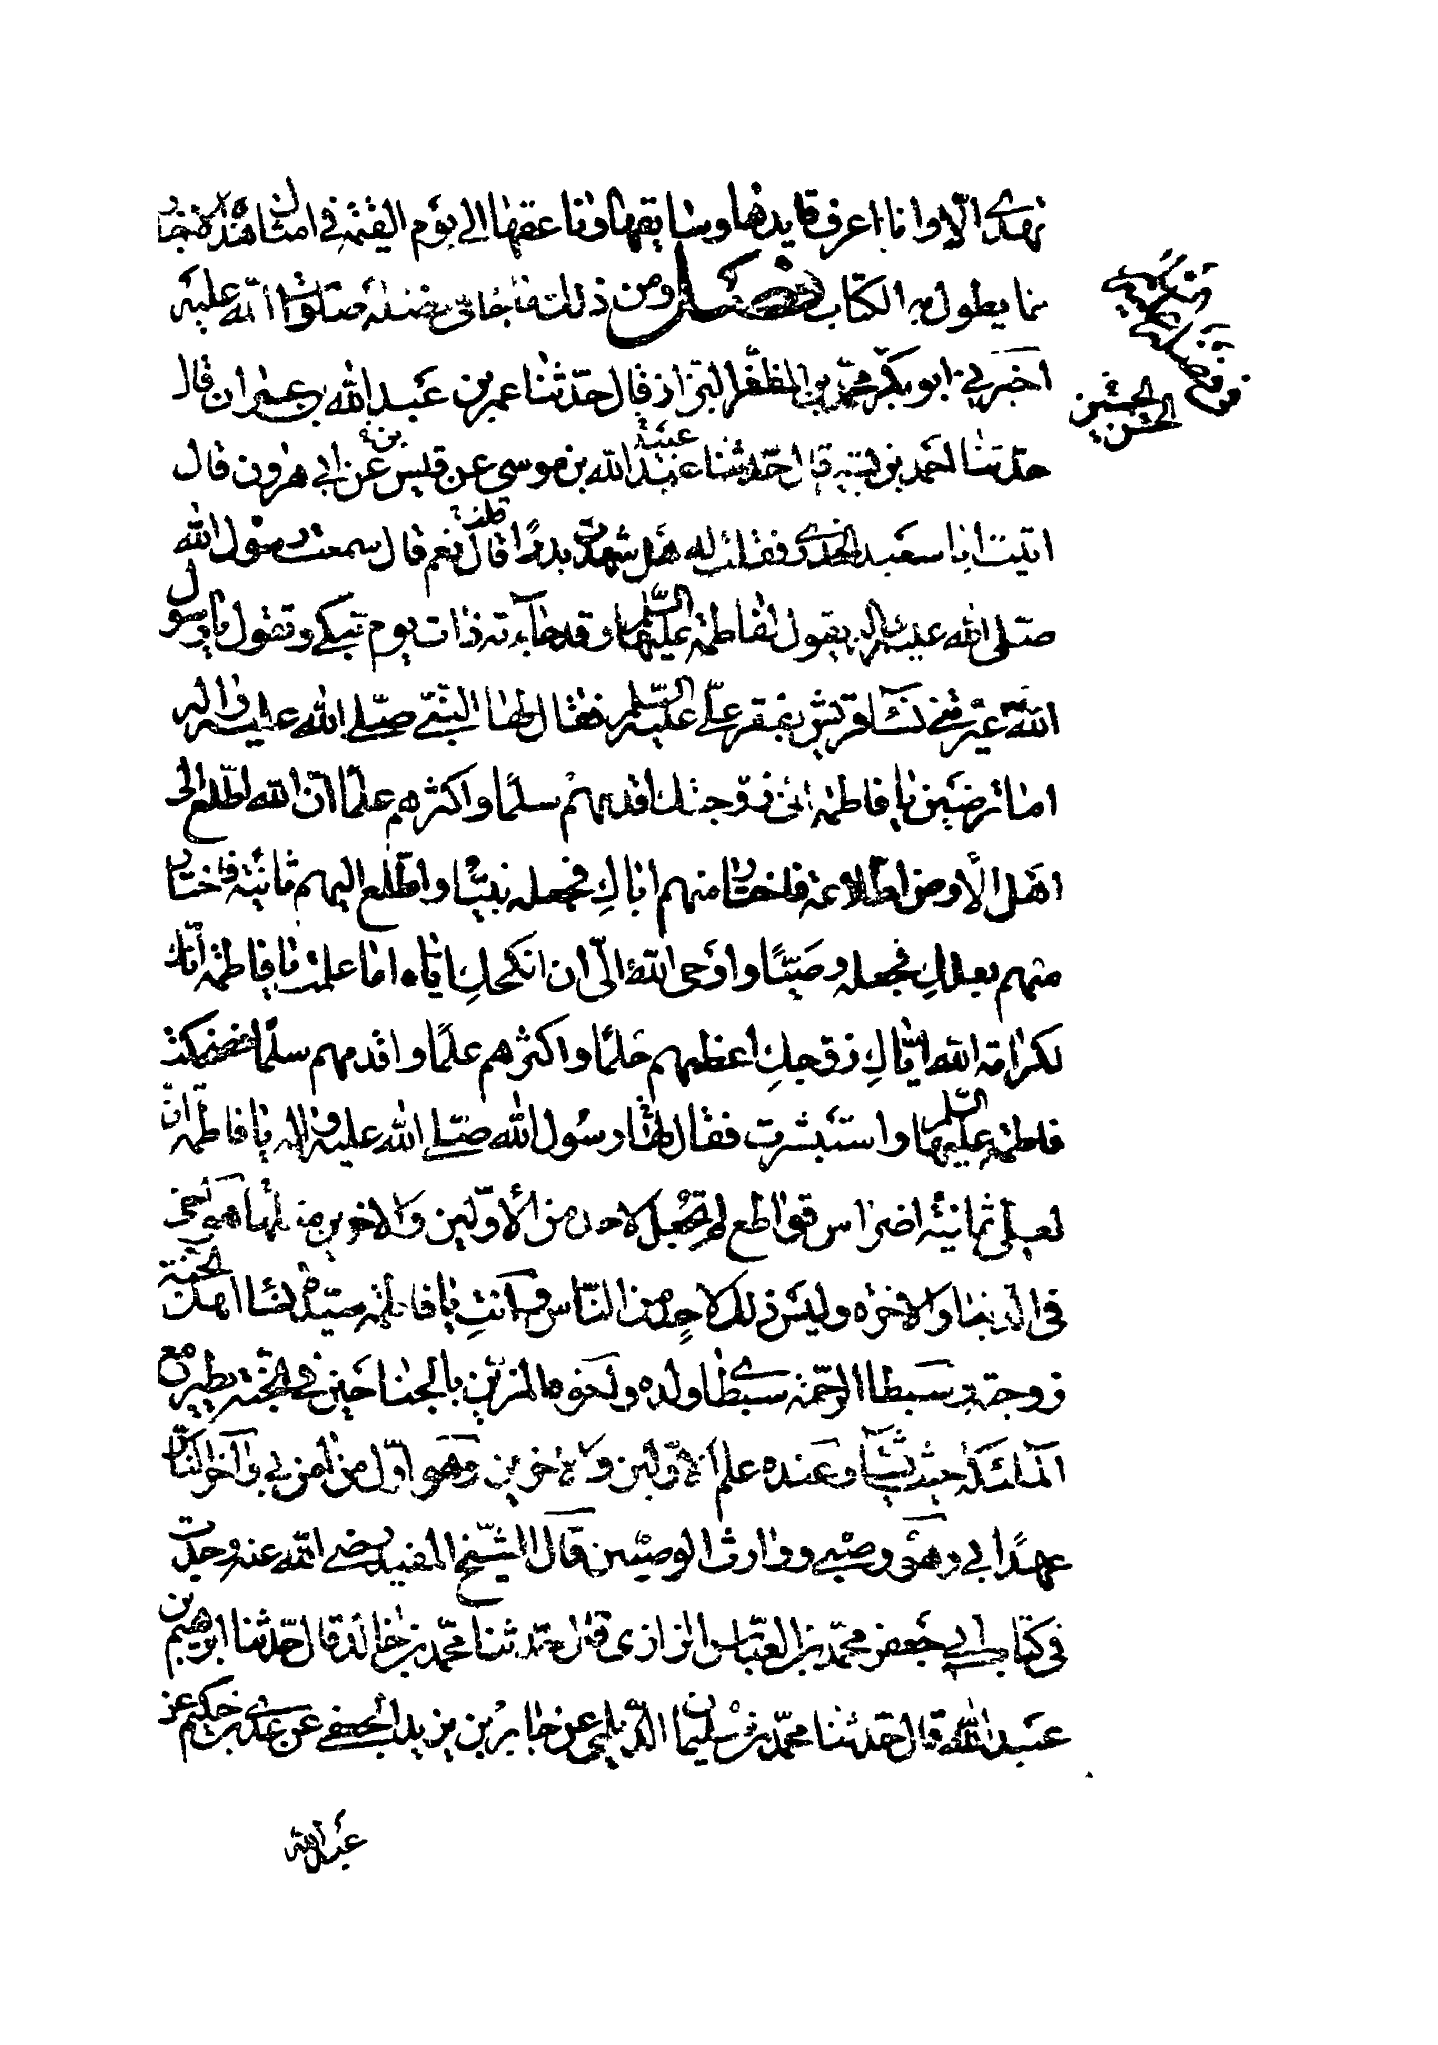 تهدي الا وانا اعرف قايدها وسايقها وناعقها الى يوم القيمة في امثال هذه الاخبار
مما يطول به الكتاب فصل ومن ذلك ما جاء في فضله صلوات الله عليه
اخبرني ابو بكر محمد بن المظفر البزاز قال حدثنا عمر بن عبد الله بن عمران قال
حدثنا احمد بن بشير قال حدثنا عبيد الله بن موسى عن قيس عن ابي هرون قال
اتيت ابا سعيد الخدري فقلت له هل شهدت بدرا قال نعم قال سمعت رسول الله
صلى الله عليه واله يقول لفاطمة عليها السلم وقد جاءته ذات يوم تبكي وتقول يا رسول
الله عيرتني نساء قريش بفقر علي عليه السلم فقال لها النبي صلى الله عليه واله
اما ترضين يا فاطمة اني زوجتك اقدمهم سلما واكثرهم علما ان الله اطلع الى
اهل الارض اطلاعة فاختار منهم اباك فجعله نبيا واطلع اليهم ثانية فاختار
منهم بعلك فجعله وصيا واوحى الله الي ان انكحك اياه اما علمت يا فاطمة انك
لكرامة الله اياك زوجك اعظمهم حلما واكثرهم علما واقدمهم سلما فضحكت
فاطمة عليها السلم واستبشرت فقال لها رسول الله صلى الله عليه واله يا فاطمة ان
لعلي ثمانية اضراس قواطع لم تجعل لاحد من الاولين والاخرين مثلها هو اخي
في الدنيا والاخرة وليس ذلك لاحد من الناس وانت يا فاطمة سيدة نساء اهل الجنة
زوجته وسبطا الرحمة سبطاي ولده واخوه المزين بالجناحين في الجنة يطير مع
الملئكة حيث يشاء وعنده علم الاولين والاخرين وهو اول من امن بي واخر الناس
عهدا بي وهو وصيي ووارث الوصيين قال الشيخ المفيد رضي الله عنه وجدت
في كتاب ابي جعفر محمد بن العباس الرازي قال حدثنا محمد بن خالد قال حدثنا ابرهيم بن
عبد الله قال حدثنا محمد بن سليمان الديلمي عن جابر بن يزيد الجعفي عن عدي بن حكيم عن
عبد الله